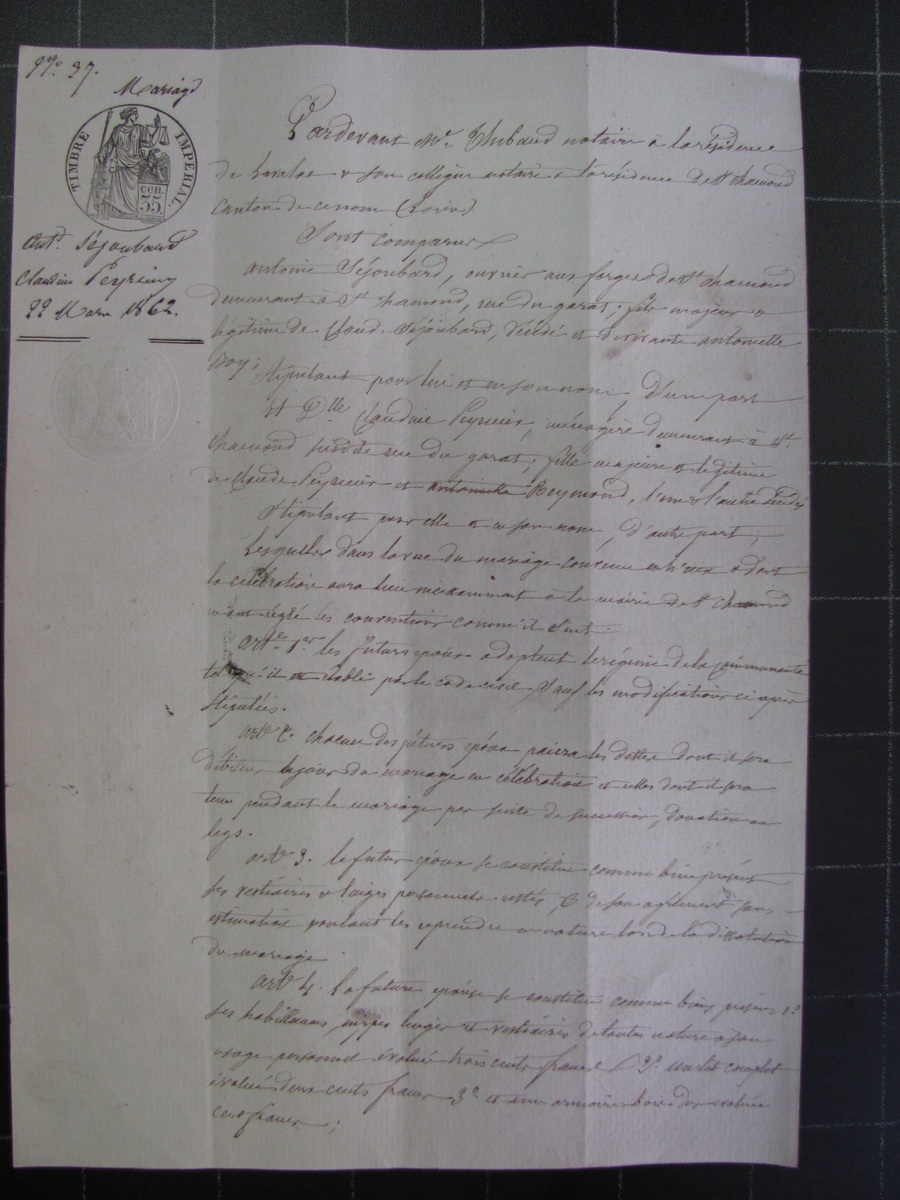 No. 37.
Mariage
TIMBRE IMPÉRIAL
cen. 35
Ant. Séjoubard
Claudine Peyrieux
22 Mars 1862.
Pardevant Me. Thibaud notaire à la résidence
de Lavalas & son collègue notaire à la résidence de St. chamond
Canton de ce nom (Loire)
Sont comparus
antoine Séjoubard, ouvrier aux forges de St. chamond
demeurant à St. chamond, rue du garat; fils majeur &
légitime de Claud. Séjoubard, décédé et de vivante antoinette
Boy;
Stipulant pour lui et en son nom, d'une part
Et Dlle. Claudine Peyrieux, ménagère demeurant à St.
chamond susdite rue du garat; fille majeure et légitime
de Claude Peyrieux et antoinette Reymond, l'un & l'autre décédés
Stipulant pour elle et en son nom, d'autre part;
Lesquelles dans la vue du mariage convenu entr'eux & dont
la célébration aura lieu incessamment à la mairie de St. chamond
ont réglé les conventions comm'il suit:
art. 1er. les futurs époux adoptent le régime de la communauté
tel qu'il est établi par le code civil sauf les modifications ci après
stipulées.
art. 2. chacun des futurs époux paiera les dettes dont il sera
débiteur le jour du mariage en célébration et celles dont il sera
tenu pendant le mariage par suite de succession, donation ou
legs.
art. 3. le futur époux se constitue comme bien présent
ses vestiaires & linges personnels restés, de son agrément sans
estimation voulant les reprendre en nature lors de la dissolution
du mariage.
art. 4. la future épouse se constitue comme biens présens 1°
ses habillemens, nippes linges et vestiaires de toute nature à son
usage personnel évalués trois cents francs 2°. un lit complet
évalué deux cents francs 3° et une armoire bois dur évaluée
cent francs;